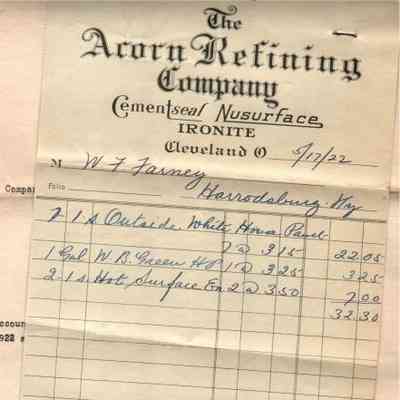 The
Acorn Refining
Company
Cementseal Nusurface
IRONITE
Cleveland O 5/17/22
M W F Farney
Compan
Folio Harrodsburg Ky
7 1s Outside White House Paint
7 @ 315 22.05
1 Gal W.B. Green H P 1 @ 325 3.25
2 1s Hot Surface En 2 @ 350 7.00
32.30
ccoun
922 s